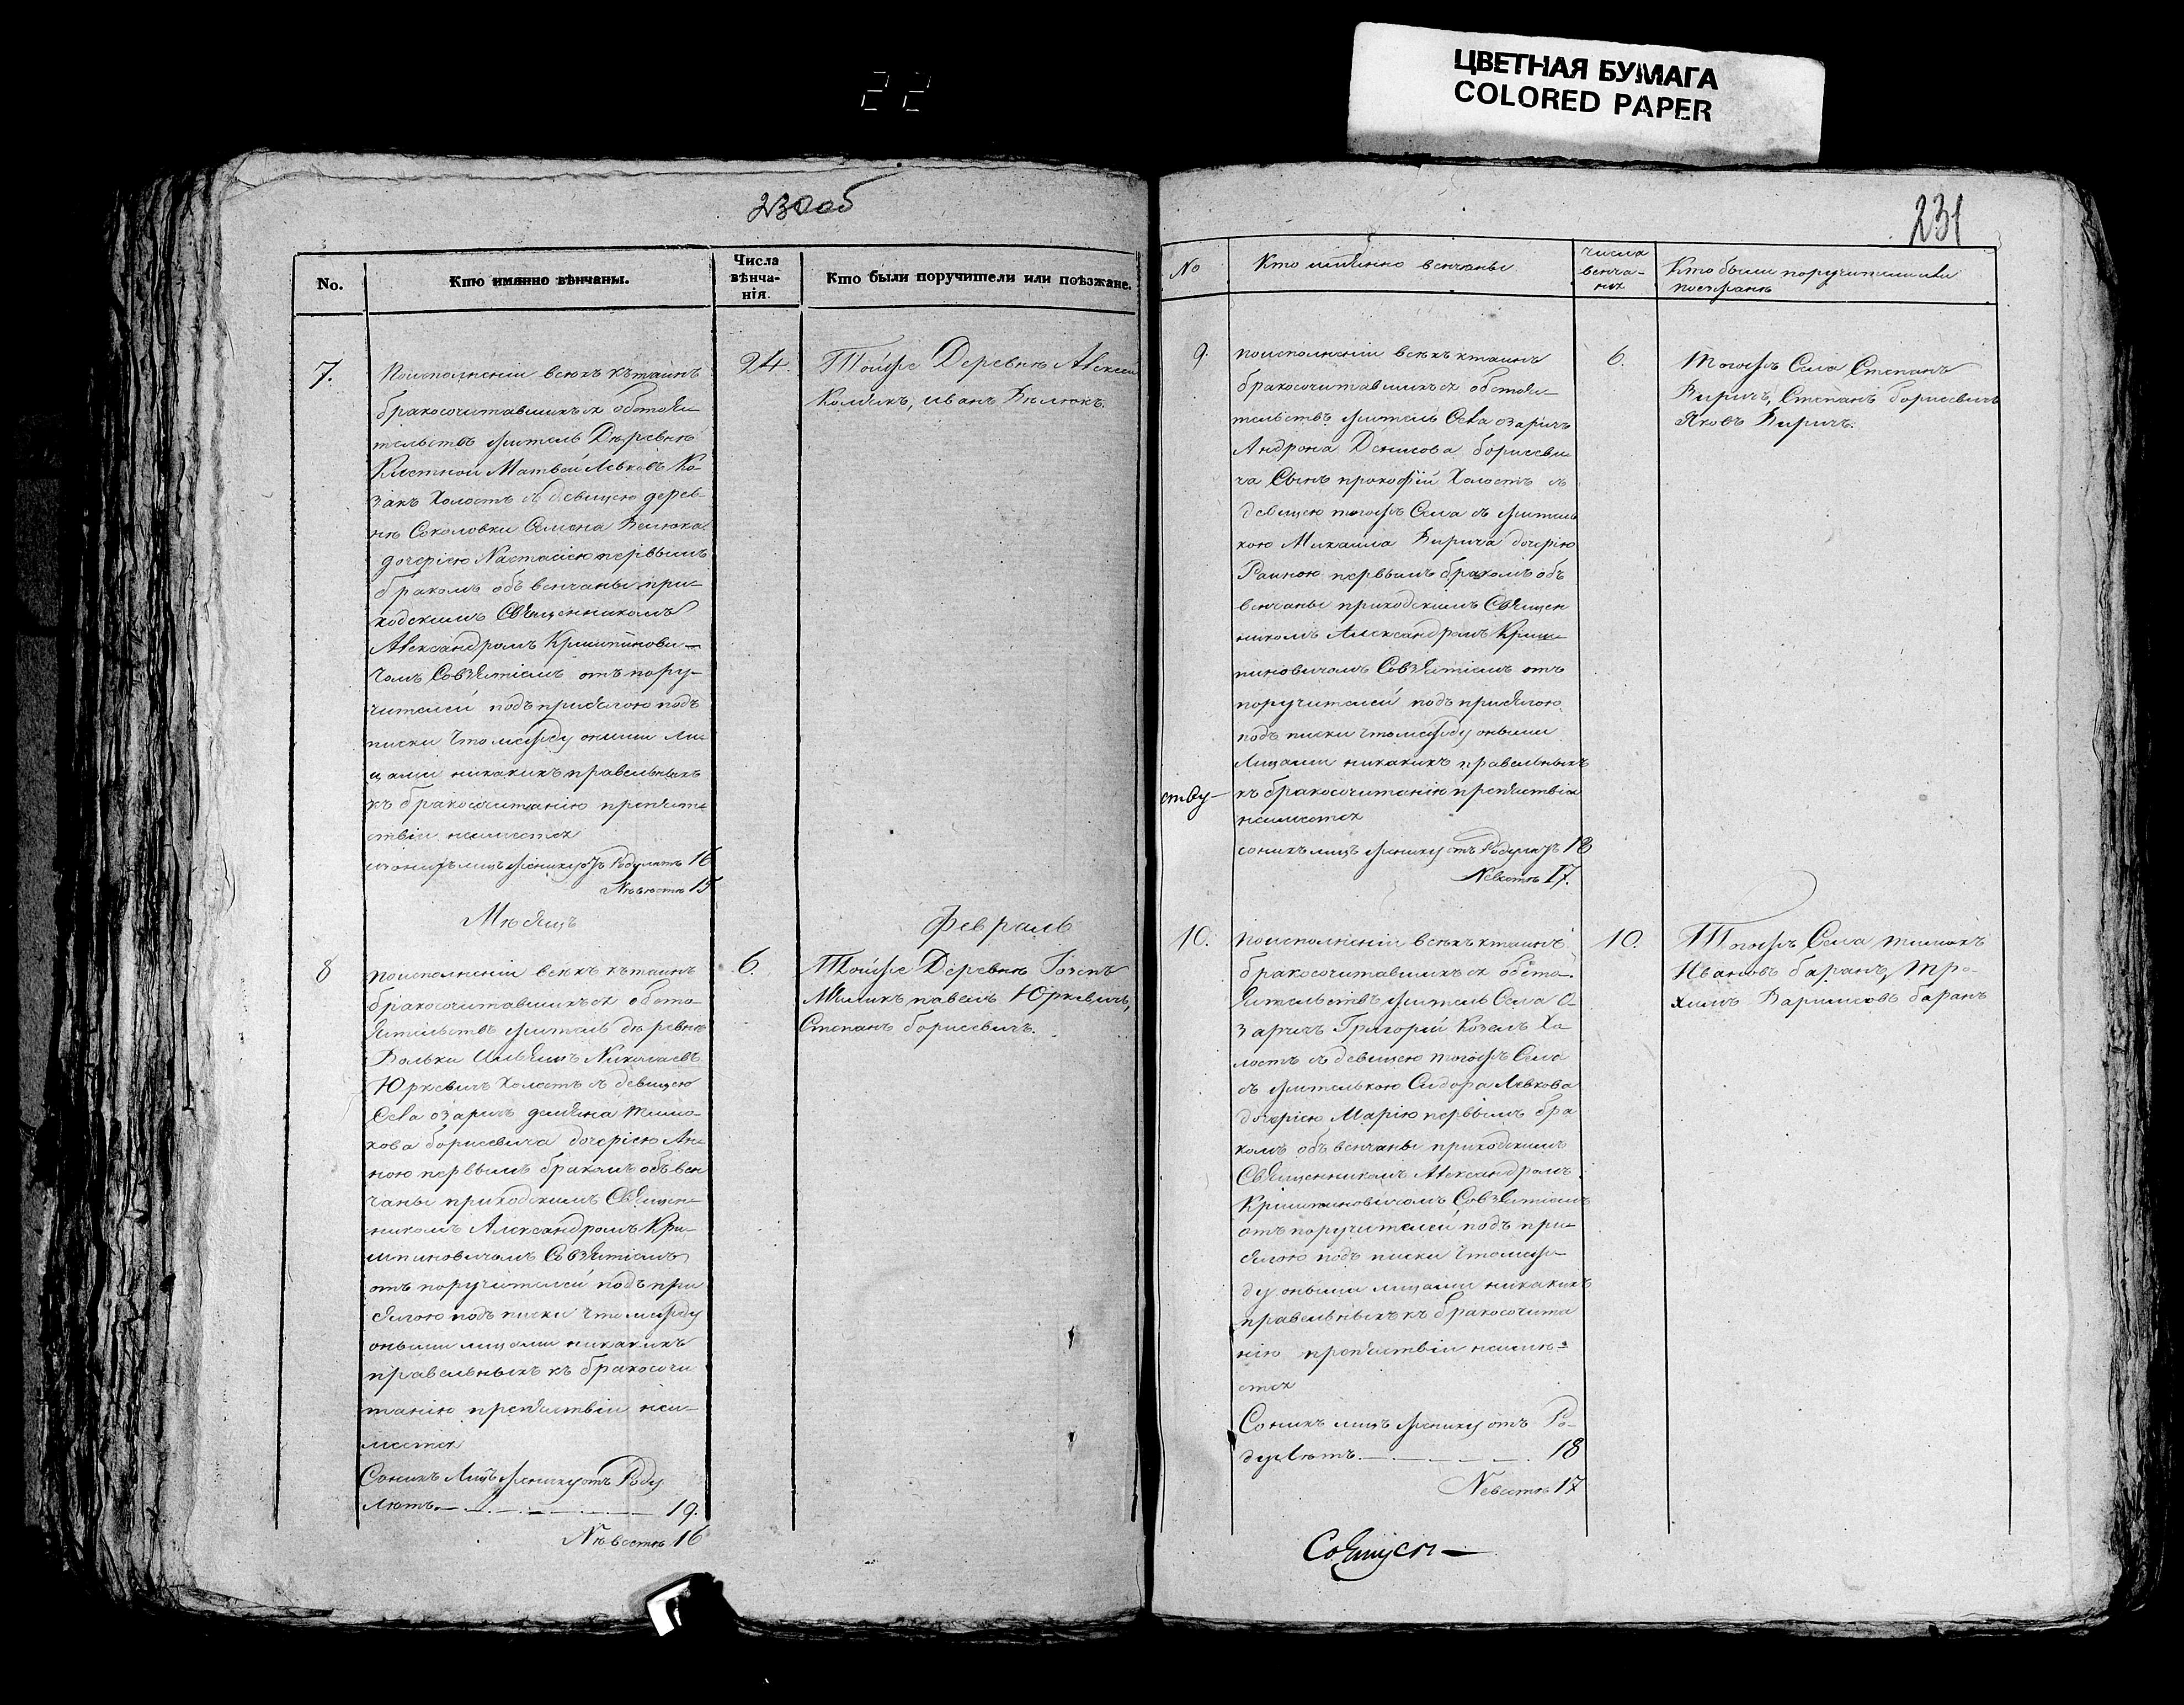 22
ЦВЕТНАЯ БУМАГА
COLORED PAPER
230об
No.
Кто имянно вѣнчаны.
Числа
вѣнча-
нія.
Кто были поручители или поѣзжане.
7.
Поисполненіи всехъ къ таинъ
бракосочитавшихъся обстояи
тельствъ житель Деревнѣ
Клетной Матвей Левковъ Ко-
закъ Холостъ съ девицею дерев-
нѣ Соколовки Семена Велюка
дочеріею Настасіею первымъ
бракомъ обвенчаны при-
ходскимъ Священникомъ
Александромъ Криштинови-
чомъ Совзятіемъ отъ пору-
чителей подъ присягою подъ
писки что между оными ли-
цами никакихъ правельныхъ
къ бракосочитанію препятс
ствіи неиметса
Лѣтъ 16
Невѣстѣ 15
24.
Тойже Деревнѣ Алексей
Колдикъ, иванъ Велюкъ.
Мѣсяцъ
февраль
8
поисполненіи всѣхъ къ таинъ
бракосочитавшихъся обсто-
ятильствъ житель деревнѣ
Вольки Николаевъ
Юркевичъ Холостъ съ девицею
Села озаричъ демяна тимо-
хова борисевича дочеріею Ан-
ною первымъ бракомъ обвен
чаны приходскимъ Священ-
никомъ Александромъ Кри-
штиновичомъ Совзятіемъ
отъ поручителей подъ при
сягою подъ писки что между
оными лицами никакихъ
правельныхъ къ бракосочи
танію препятствіи неи-
метса
Сонихъ Лицъ жениху отъ Роду
Лѣтъ 19.
Невестѣ 16
6.
Тойже Деревнѣ
павелъ Юркевичъ,
Степанъ борисевичъ.
231
No
Кто имянно венчаны
числа
венча-
нія
Кто были поручители или
поезжанѣ
9.
поисполненіи всѣхъ къ таинъ
бракосочитавшихъся обстояи
тельствъ житель Села озаричъ
Андрона Денисова борисеви
ча Сынъ прокофій Холостъ съ
девицею тогожъ Села съ житель
кою Михаила Вирича дочерію
Раиною первымъ бракомъ объ
венчаны приходскимъ Священ
никомъ Александромъ Кришти
пиновичомъ Совзятіемъ отъ
поручителей подъ присягою
подъ писки что между оными
Лицами никакихъ правельныхъ
ству- къ бракосочитанію препятствія
неиметса
сонихъ лицъ жениху отъ Роду лѣтъ 18
Невестѣ 17.
6.
Тогожъ Села Степанъ
Виричъ, Степанъ борисевичъ
Яковъ Виричъ.
10.
поисполненіи всѣхъ къ таинъ
бракосочитавшихъся обсто-
ятильствъ житель Села О-
заричъ Григорій Козелъ Хо
лостъ съ девицею тогожъ Села
съ жителькою Сидора Левкова
дочеріею Маріею первымъ бра
комъ объ венчаны приходскимъ
Священникомъ Александромъ
Криштиновичомъ Совзятіемъ
отъ поручителей подъ при-
сягою подъ писки что меж-
ду оными лицами никакихъ
правельныхъ къ бракосочита
нію препятствіи неимѣ-
етса
Сонихъ лицъ жениху отъ Ро-
ду Лѣтъ 18
Невестѣ 17
10.
Тогожъ Села тимохъ
Ивановъ баранъ, Тро-
химъ баранъ